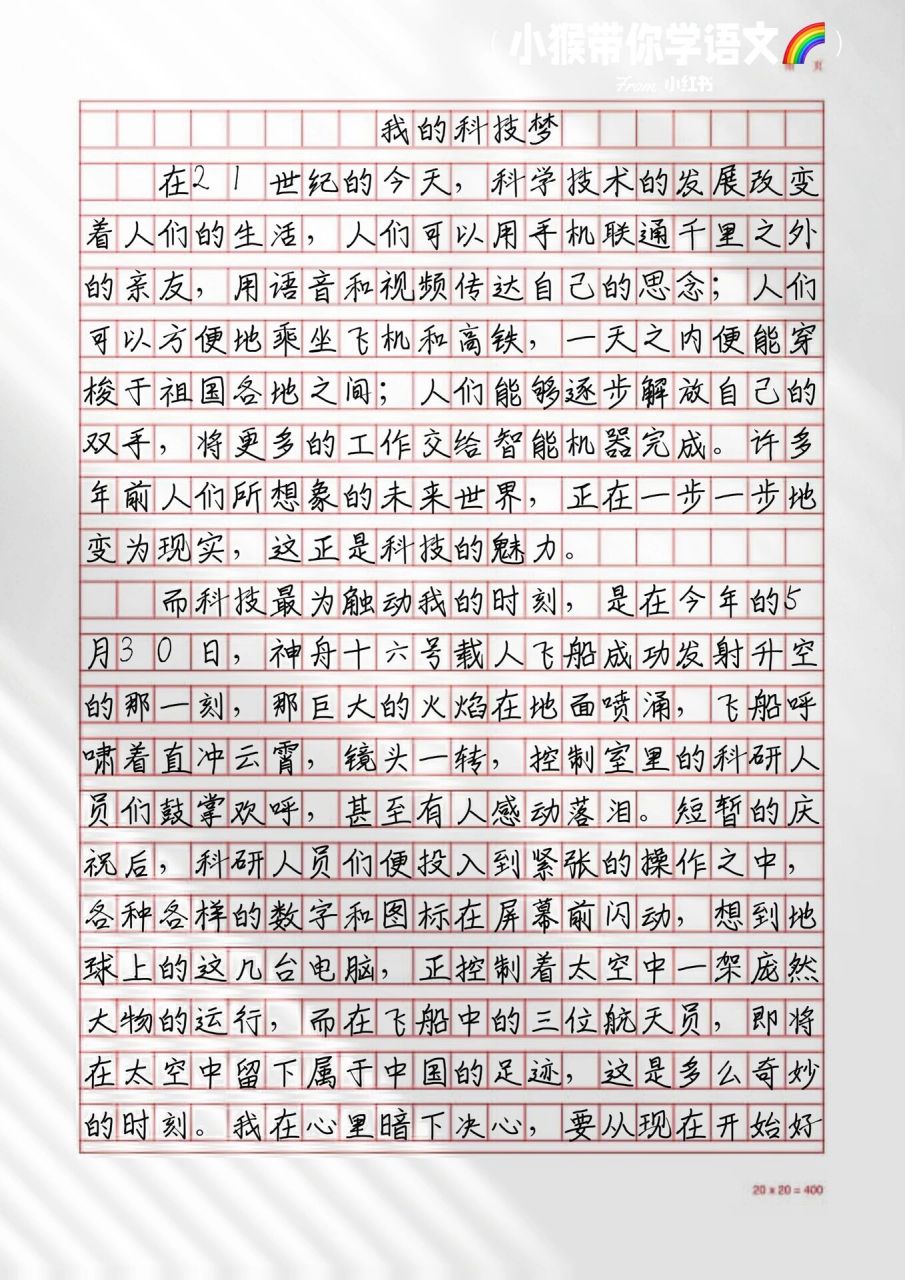 小猴带你学语文
From 小红书
页
我的科技梦
在21世纪的今天，科学技术的发展改变
着人们的生活，人们可以用手机联通千里之外
的亲友，用语音和视频传达自己的思念；人们
可以方便地乘坐飞机和高铁，一天之内便能穿
梭于祖国各地之间；人们能够逐步解放自己的
双手，将更多的工作交给智能机器完成。许多
年前人们所想象的未来世界，正在一步一步地
变为现实，这正是科技的魅力。
而科技最为触动我的时刻，是在今年的5
月30日，神舟十六号载人飞船成功发射升空
的那一刻，那巨大的火焰在地面喷涌，飞船呼
啸着直冲云霄，镜头一转，控制室里的科研人
员们鼓掌欢呼，甚至有人感动落泪。短暂的庆
祝后，科研人员们便投入到紧张的操作之中，
各种各样的数字和图标在屏幕前闪动，想到地
球上的这几台电脑，正控制着太空中一架庞然
大物的运行，而在飞船中的三位航天员，即将
在太空中留下属于中国的足迹，这是多么奇妙
的时刻。我在心里暗下决心，要从现在开始好
20 x 20 = 400